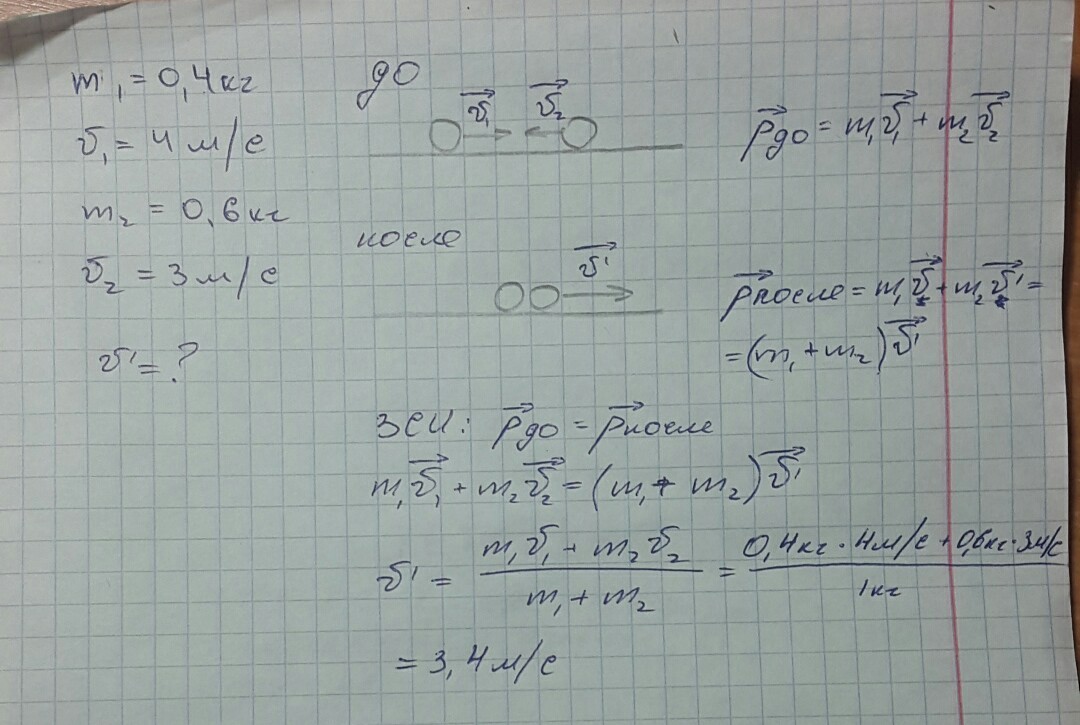 m₁ = 0,4 кг
v₁ = 4 м/с
m₂ = 0,6 кг
v₂ = 3 м/с
v' = ?
до
v⃗₁ v⃗₂
p⃗до = m₁v⃗₁ + m₂v⃗₂
после
v⃗'
p⃗после = m₁v⃗ + m₂v⃗' =
= (m₁ + m₂)v⃗'
ЗСИ: p⃗до = p⃗после
m₁v⃗₁ + m₂v⃗₂ = (m₁ + m₂)v⃗'
v' = (m₁v₁ + m₂v₂)/(m₁ + m₂) = (0,4кг · 4м/с + 0,6кг · 3м/с)/1кг
= 3,4 м/с